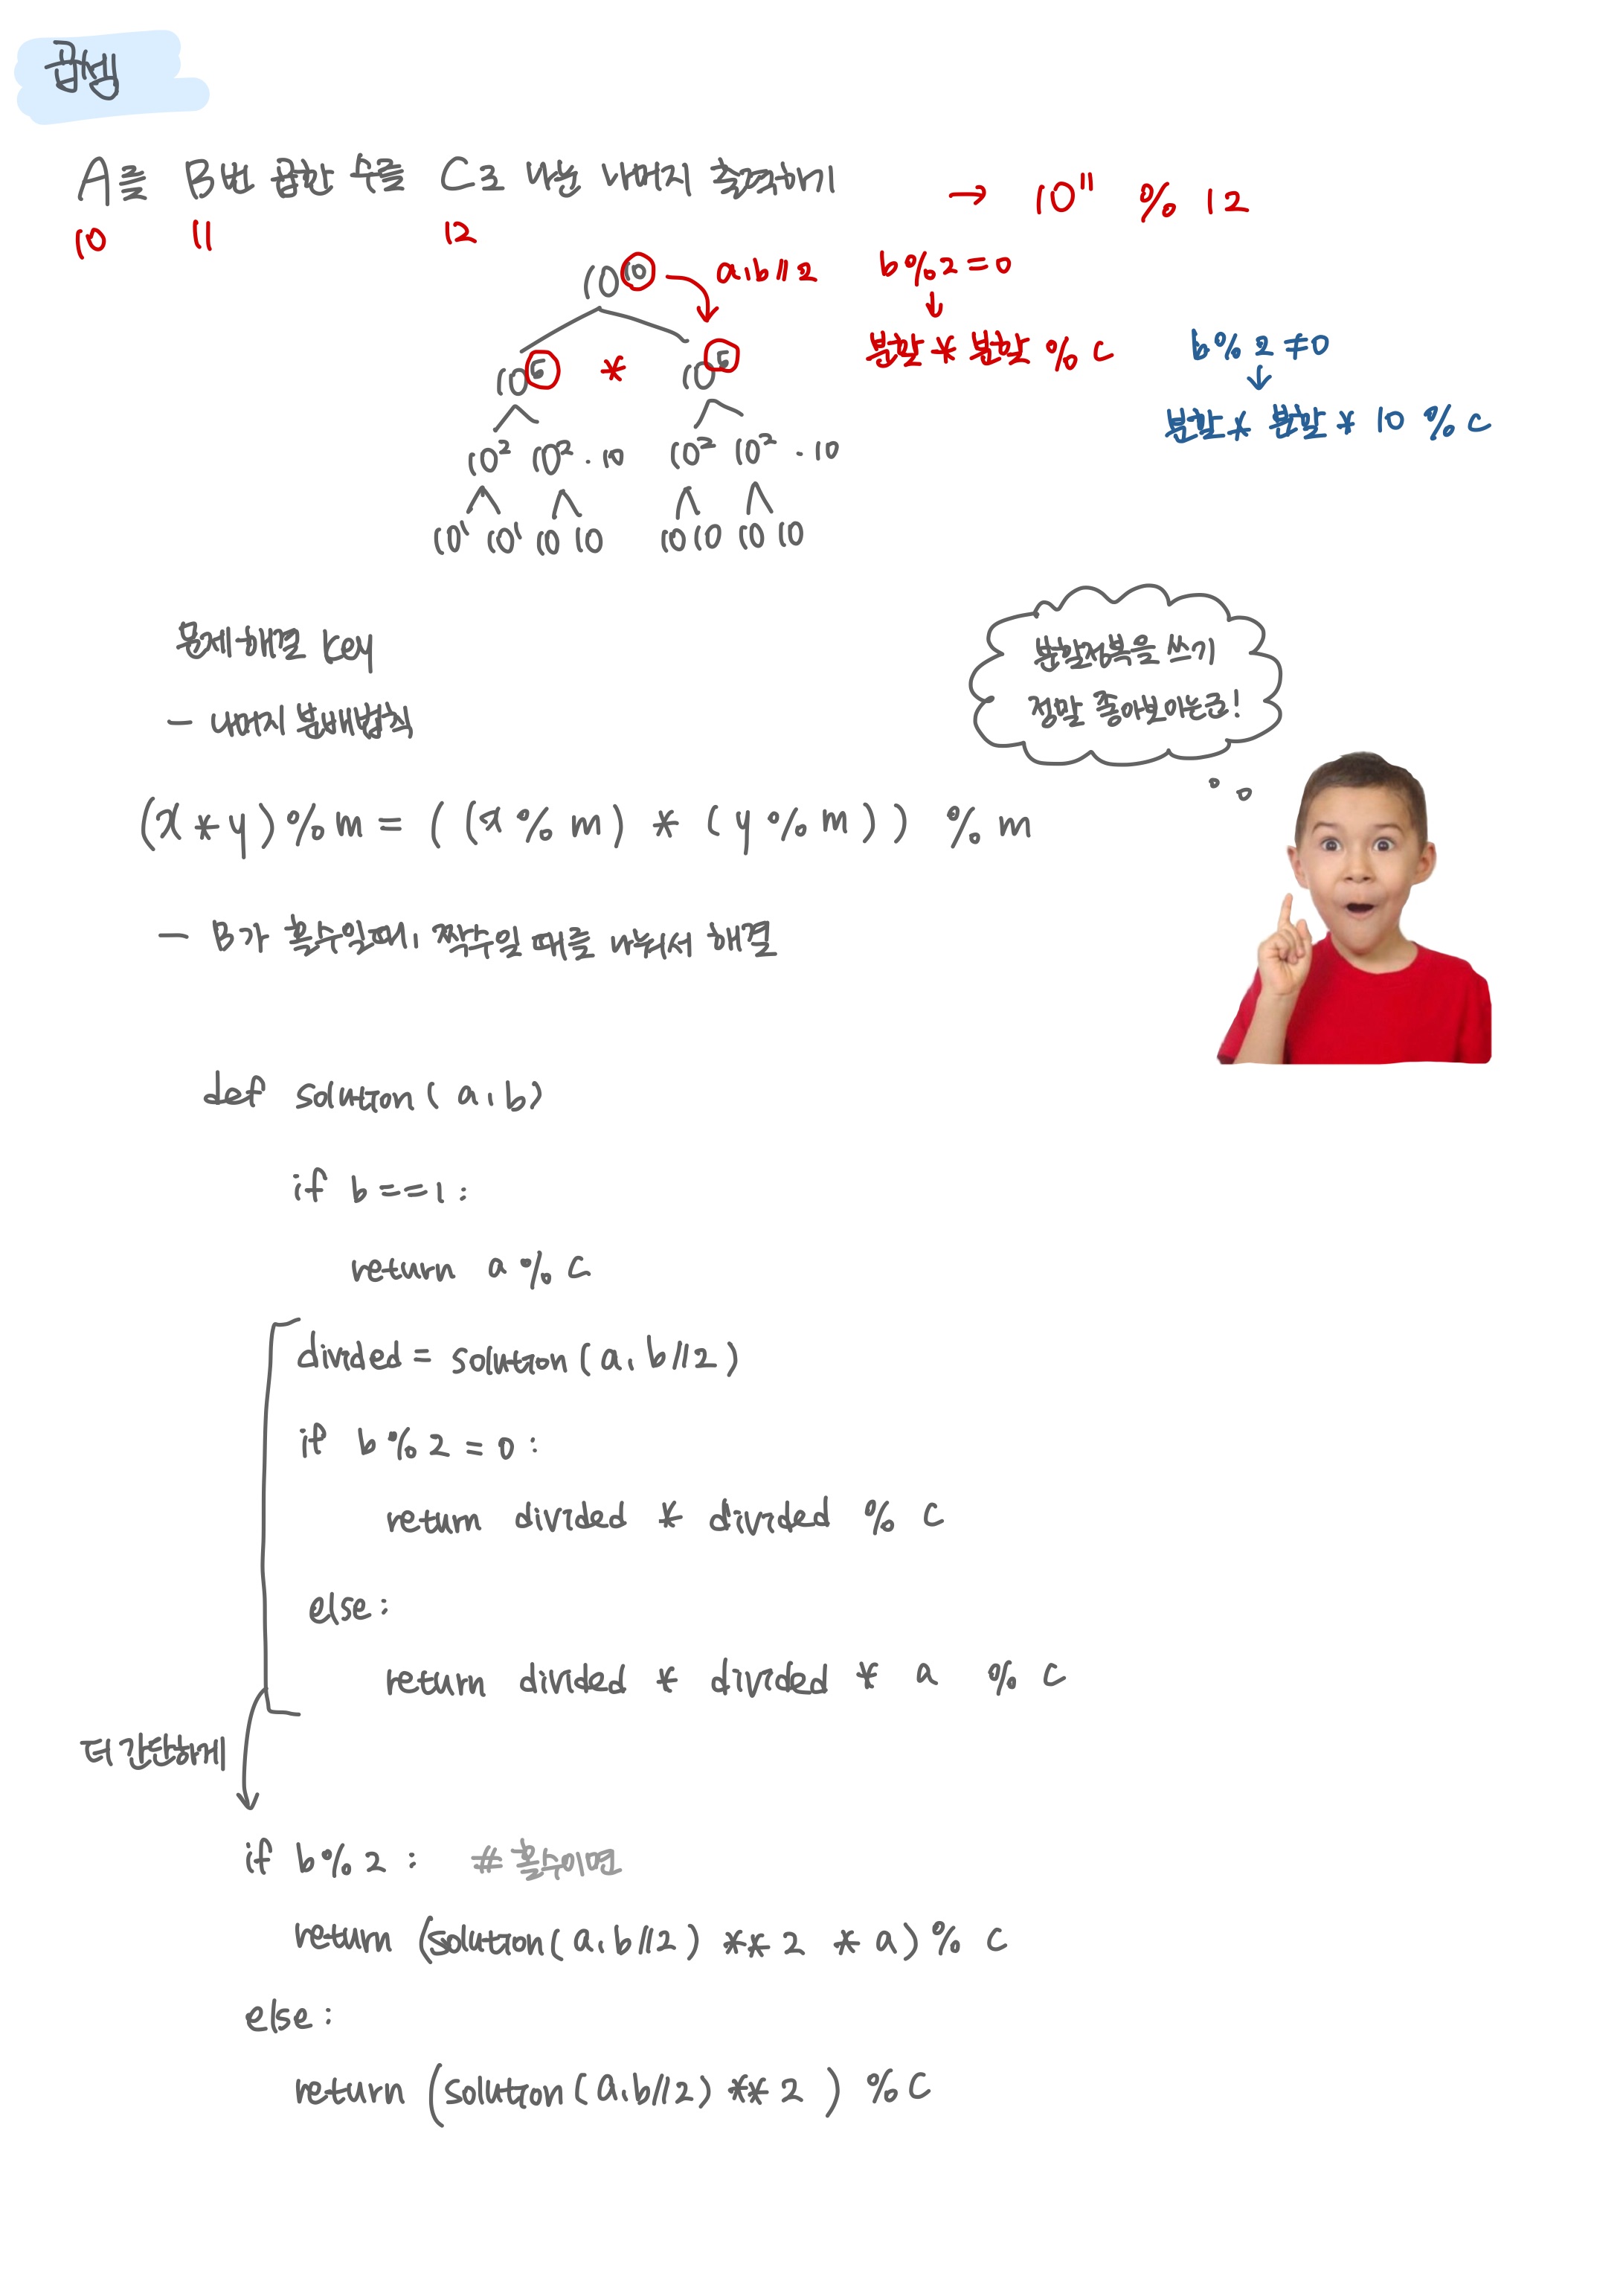 곱셈
A를 B번 곱한 수를 C로 나눈 나머지 출력하기 → 10¹¹ % 12
10 11 12
10¹⁰ a, b//2 b%2=0
↓
분할 * 분할 % c b%2≠0
↓
10⁵ * 10⁵
분할 * 분할 * 10 % c
10² 10² · 10 10² 10² · 10
10¹ 10¹ 10 10 10 10 10 10
문제해결 key
분할정복을 쓰기
정말 좋아보이는군!
- 나머지 분배법칙
(x * y) % m = ((x % m) * (y % m)) % m
- B가 홀수일때, 짝수일 때를 나눠서 해결
def solution(a,b)
if b==1:
return a % c
divided = solution(a, b//2)
if b%2=0:
return divided * divided % c
else:
return divided * divided * a % c
더 간단하게
if b%2: # 홀수이면
return (solution(a,b//2) ** 2 * a) % c
else:
return (solution(a,b//2) ** 2) % c